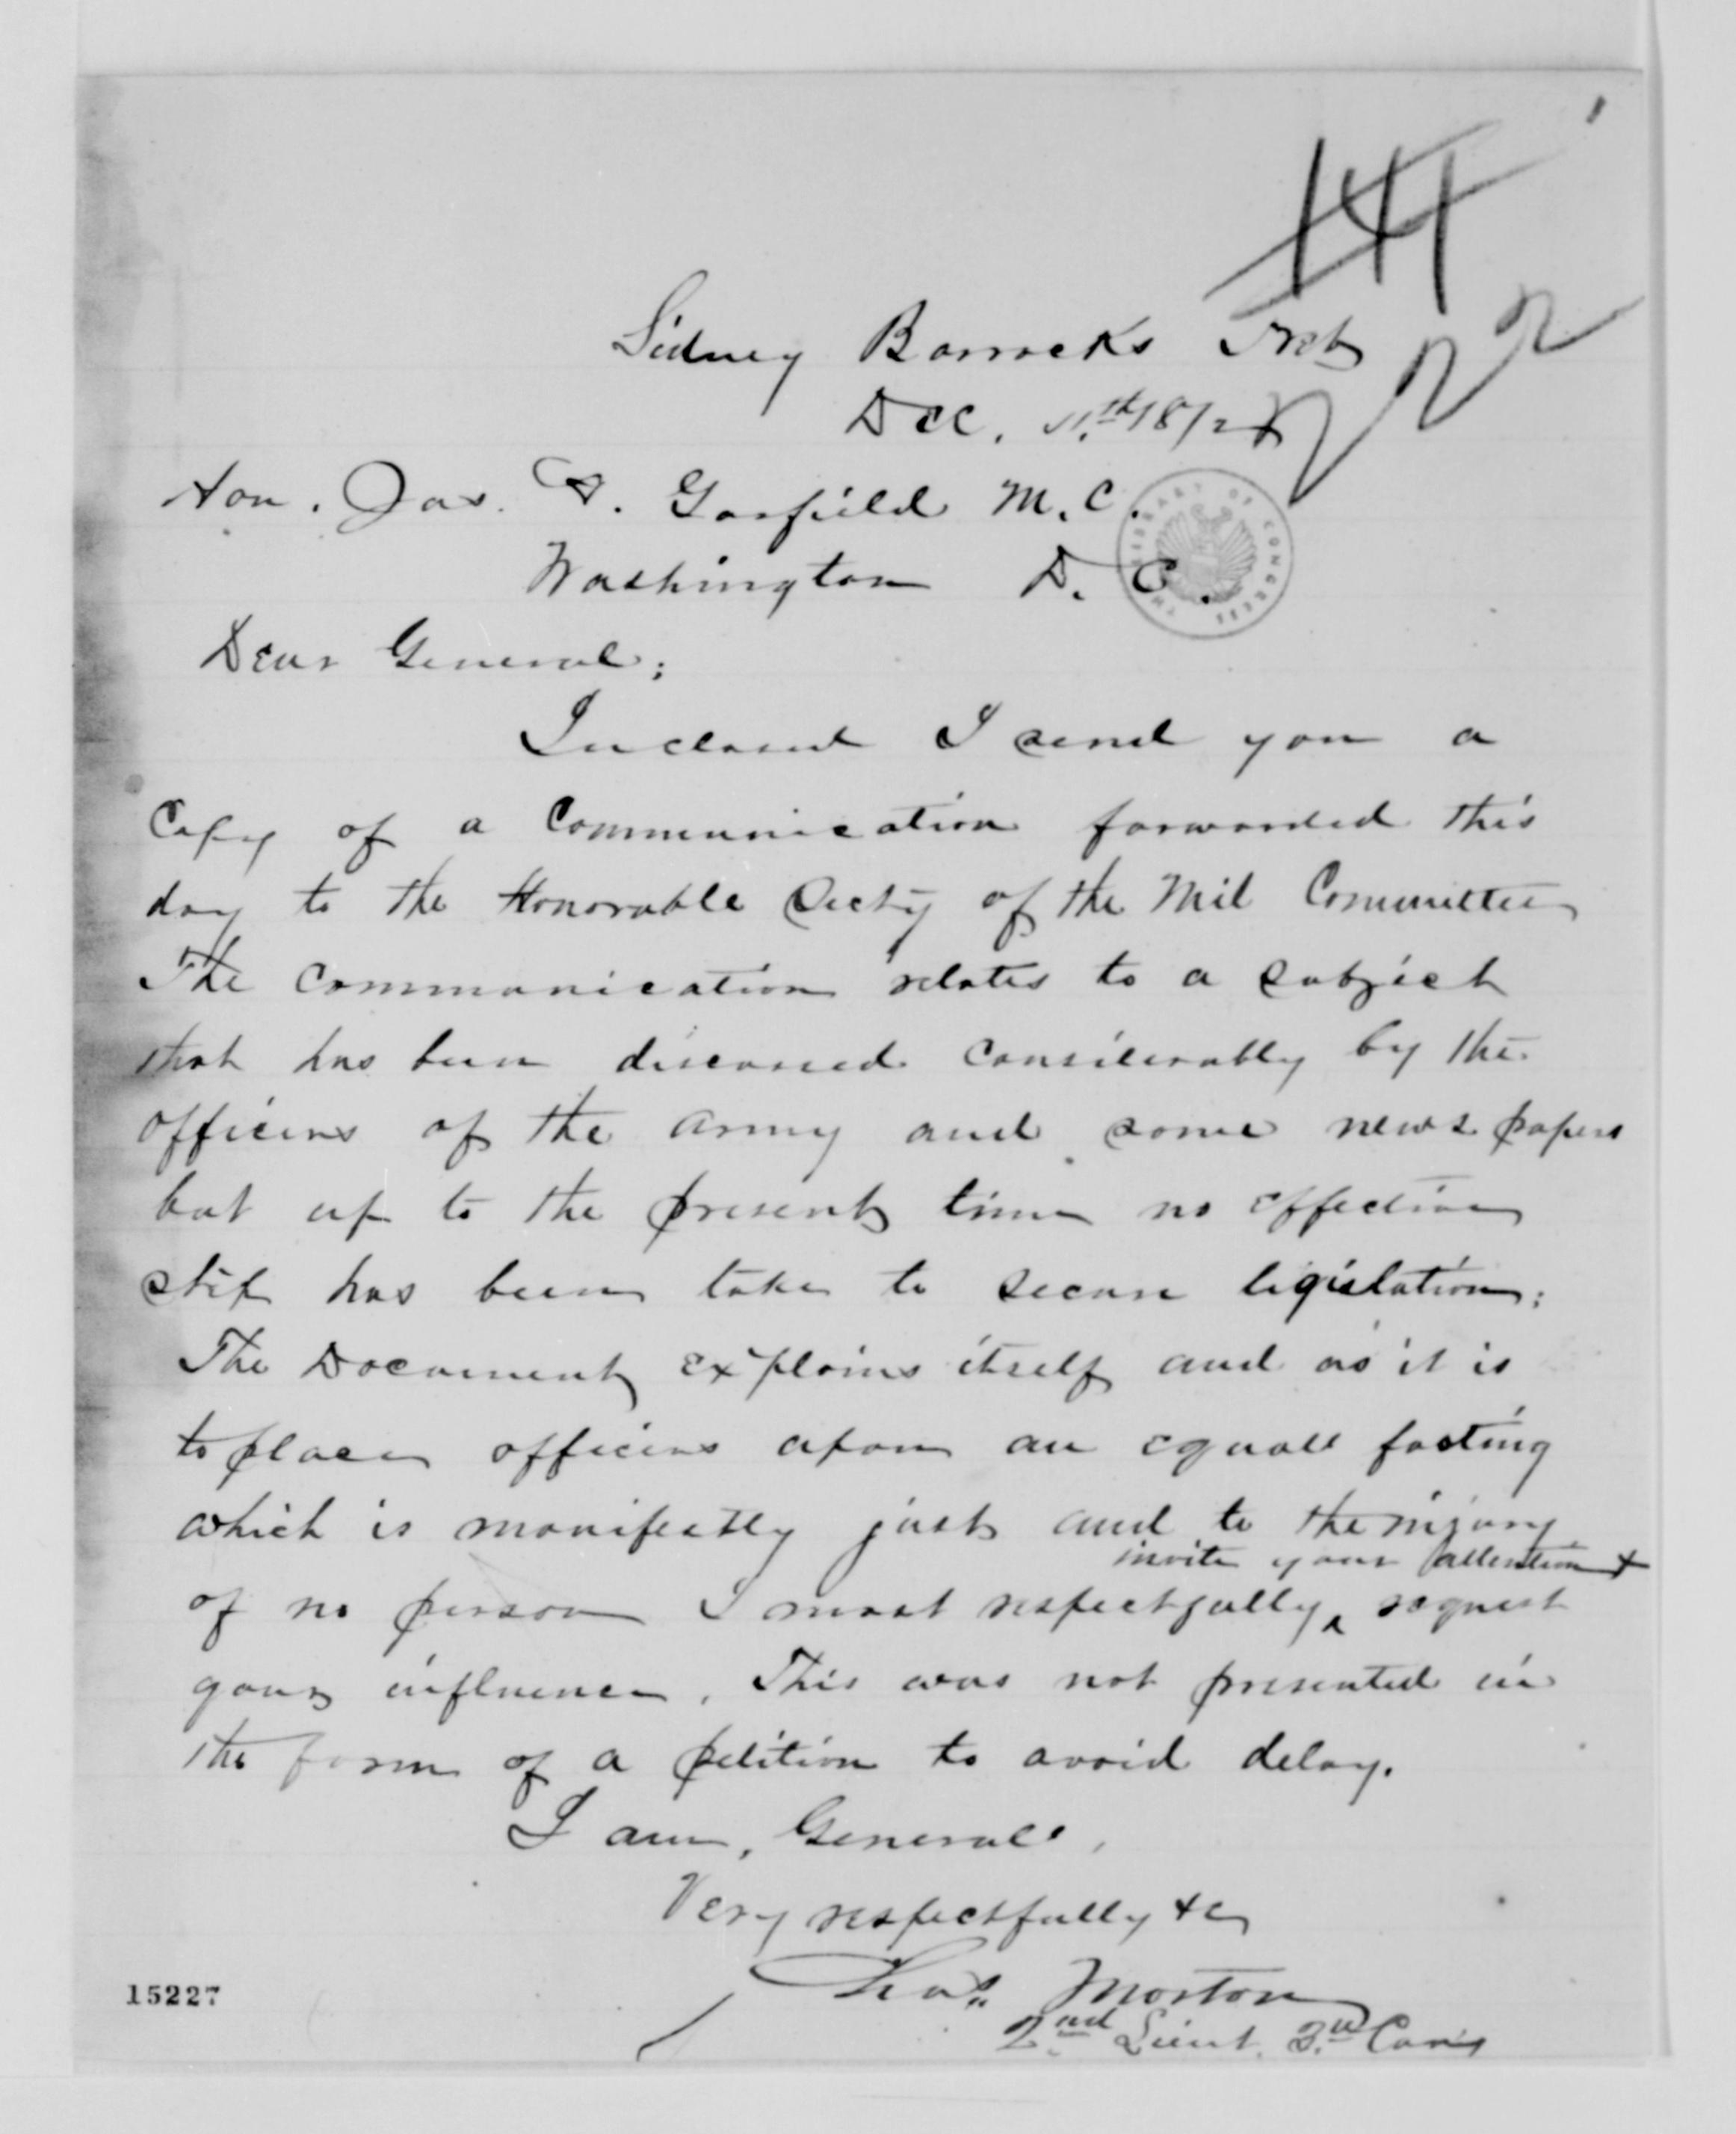 Sidney Barracks Neb
Dec. 11th 187
Hon. Jas. A. Garfield M.C.
Washington D.C.
THE LIBRARY OF CONGRESS
Dear General;
Inclosed I send you a
Copy of a Communication forwarded this
day to the Honorable Secty of the Mil Committee
The Communication relates to a subject
that has been discussed considerably by the
officers of the army and some news papers
but up to the present time no effective
step has been take to secure legislation;
The Document explains itself and as it is
to place officers upon an equal footing
which is manifestly just and to the injury
invite your attention &
of no person I most respectfully ‸ request
your influence. This was not presented in
the form of a petition to avoid delay.
I am, General,
Very respectfully &c
Chas. Morton
2nd Lieut. 3d Cav
15227